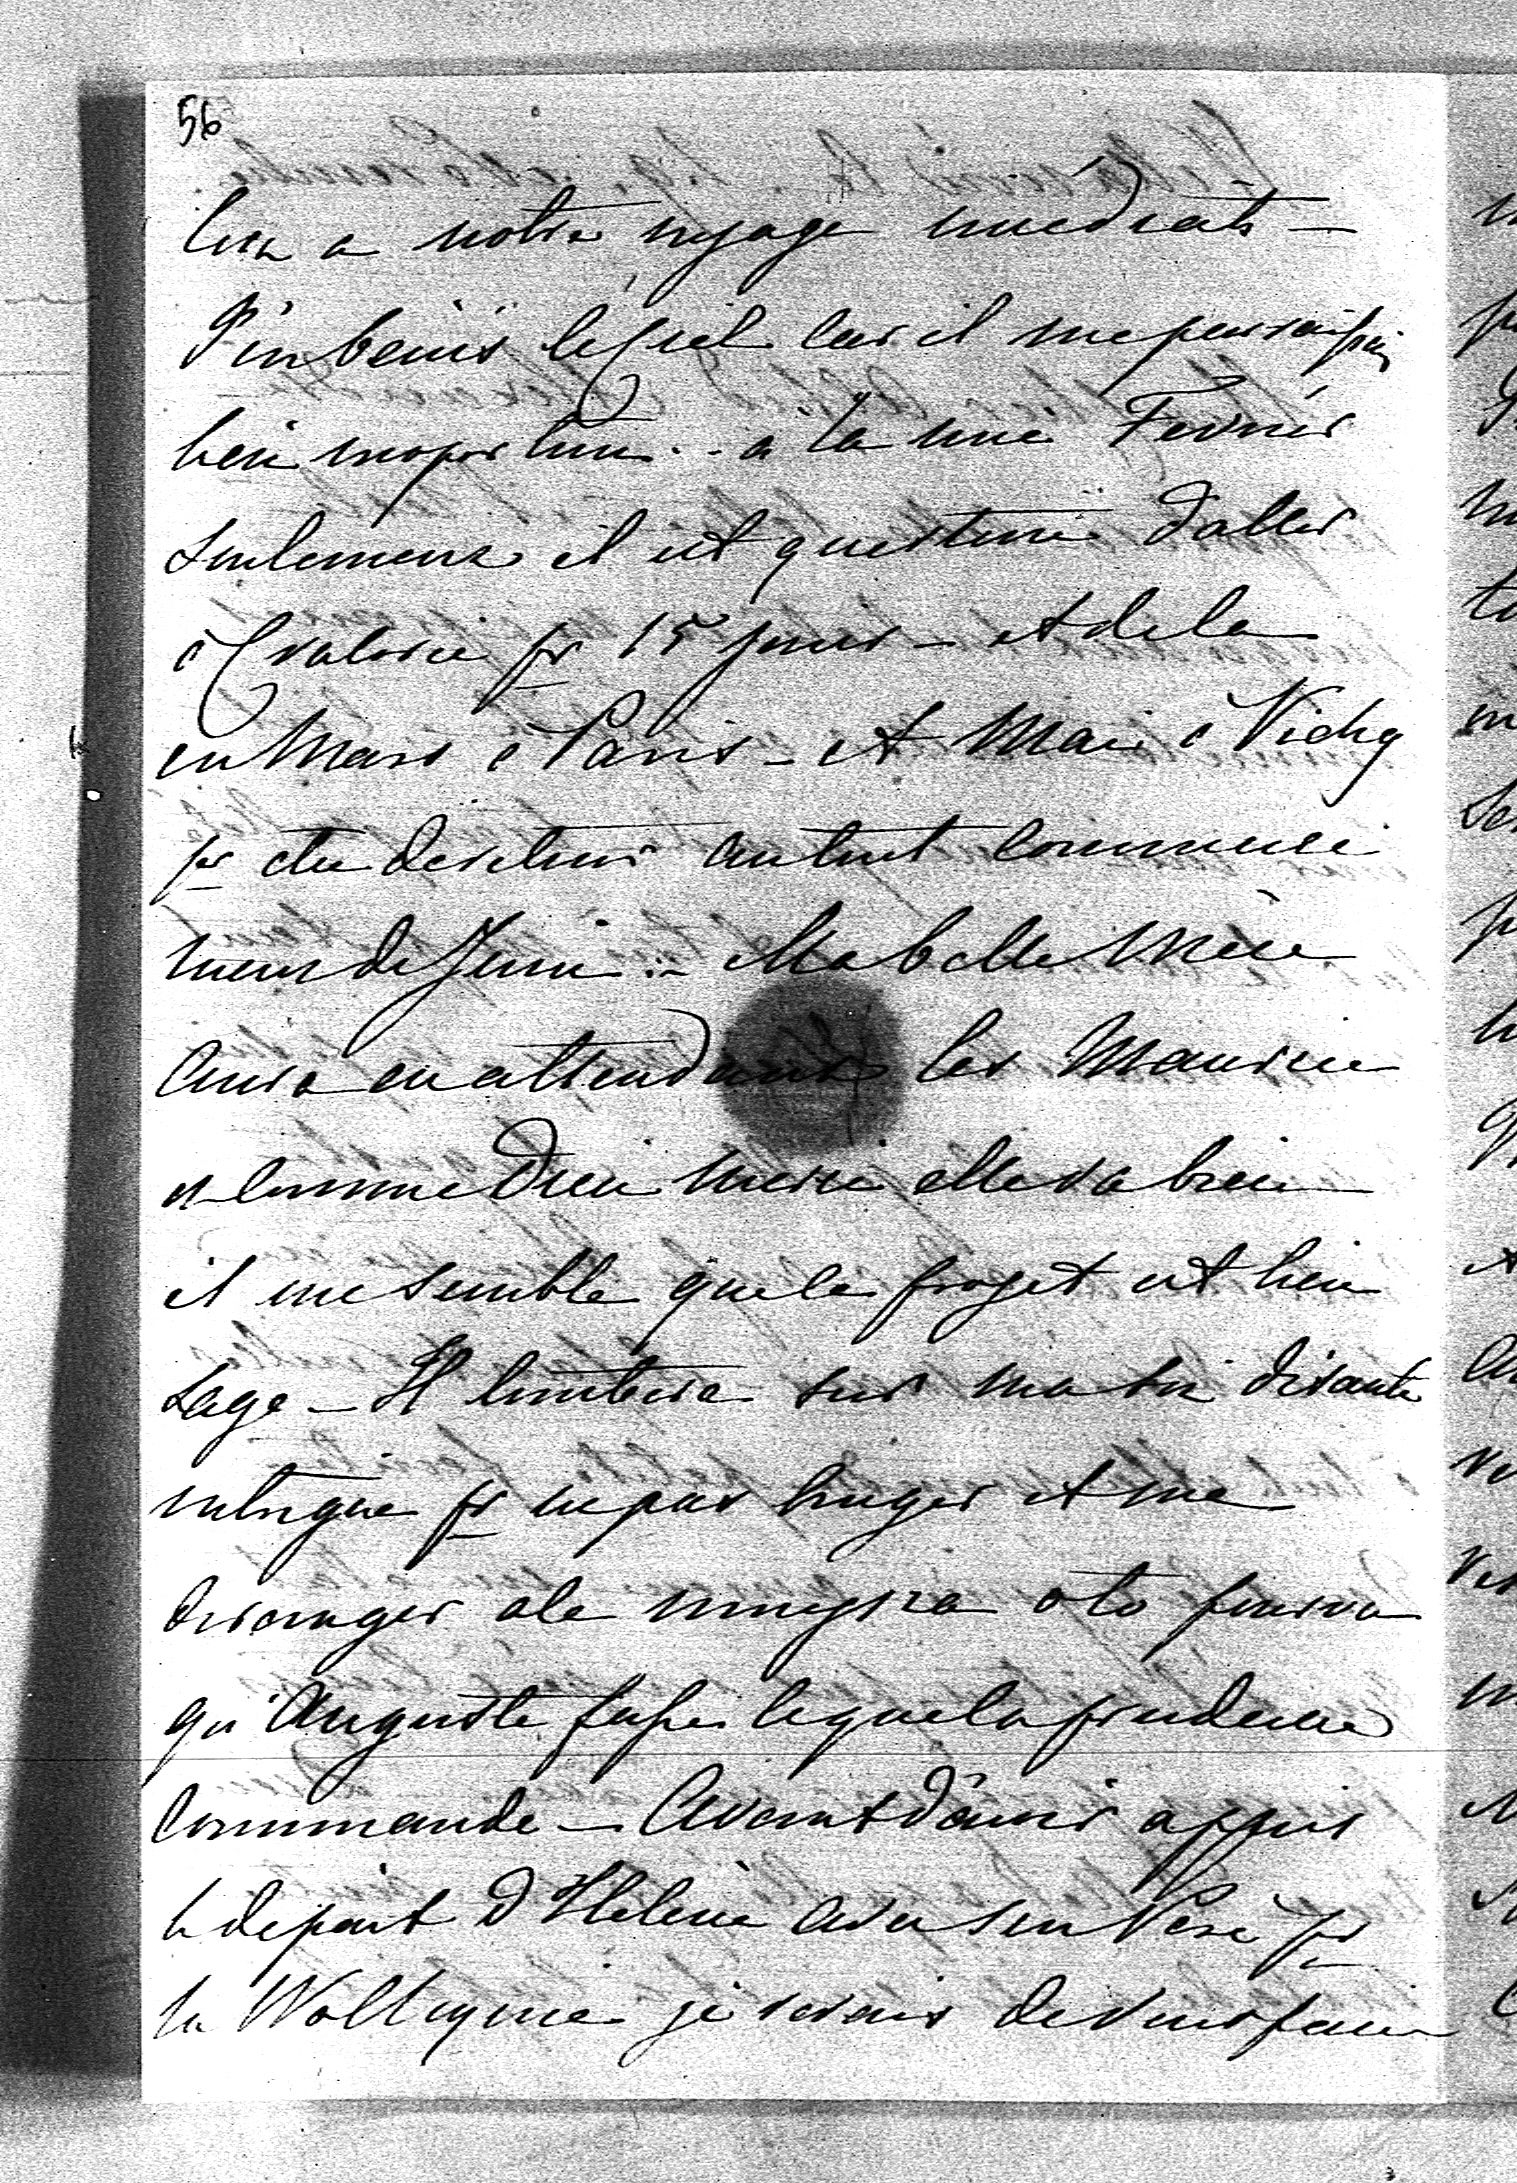 56
lera a notre voyage immediat —
J'en benis le Ciel car il me paraissais
bien inoportun .. a la mie Fevrier
seulement il est question d'aller
à Cracovie pr 15 jours — et de la
en Mars à Paris — et Mai à Vichy
pr etre de retour au tout commence
ment de Juin .. Ma belle Mère
aura en attendant les Maurice
et comme Dieu merci elle va bien
il me semble que le projet est bien
sage — Il tombera sur ma soi disante
intrigue pr ne pas bouger et me
deranger ale mniejsza o to pourvu
qu'Auguste fasse ce que la prudence
commande — Avant d'avoir appris
le depart d'Helène avec son Père pr
la Wolhynie je revais de vous faire